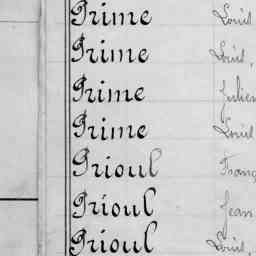 Prime Louis
Prime Louis,
Prime Julien
Prime Louis
Prioul Franç
Prioul Jean
Prioul Louis,